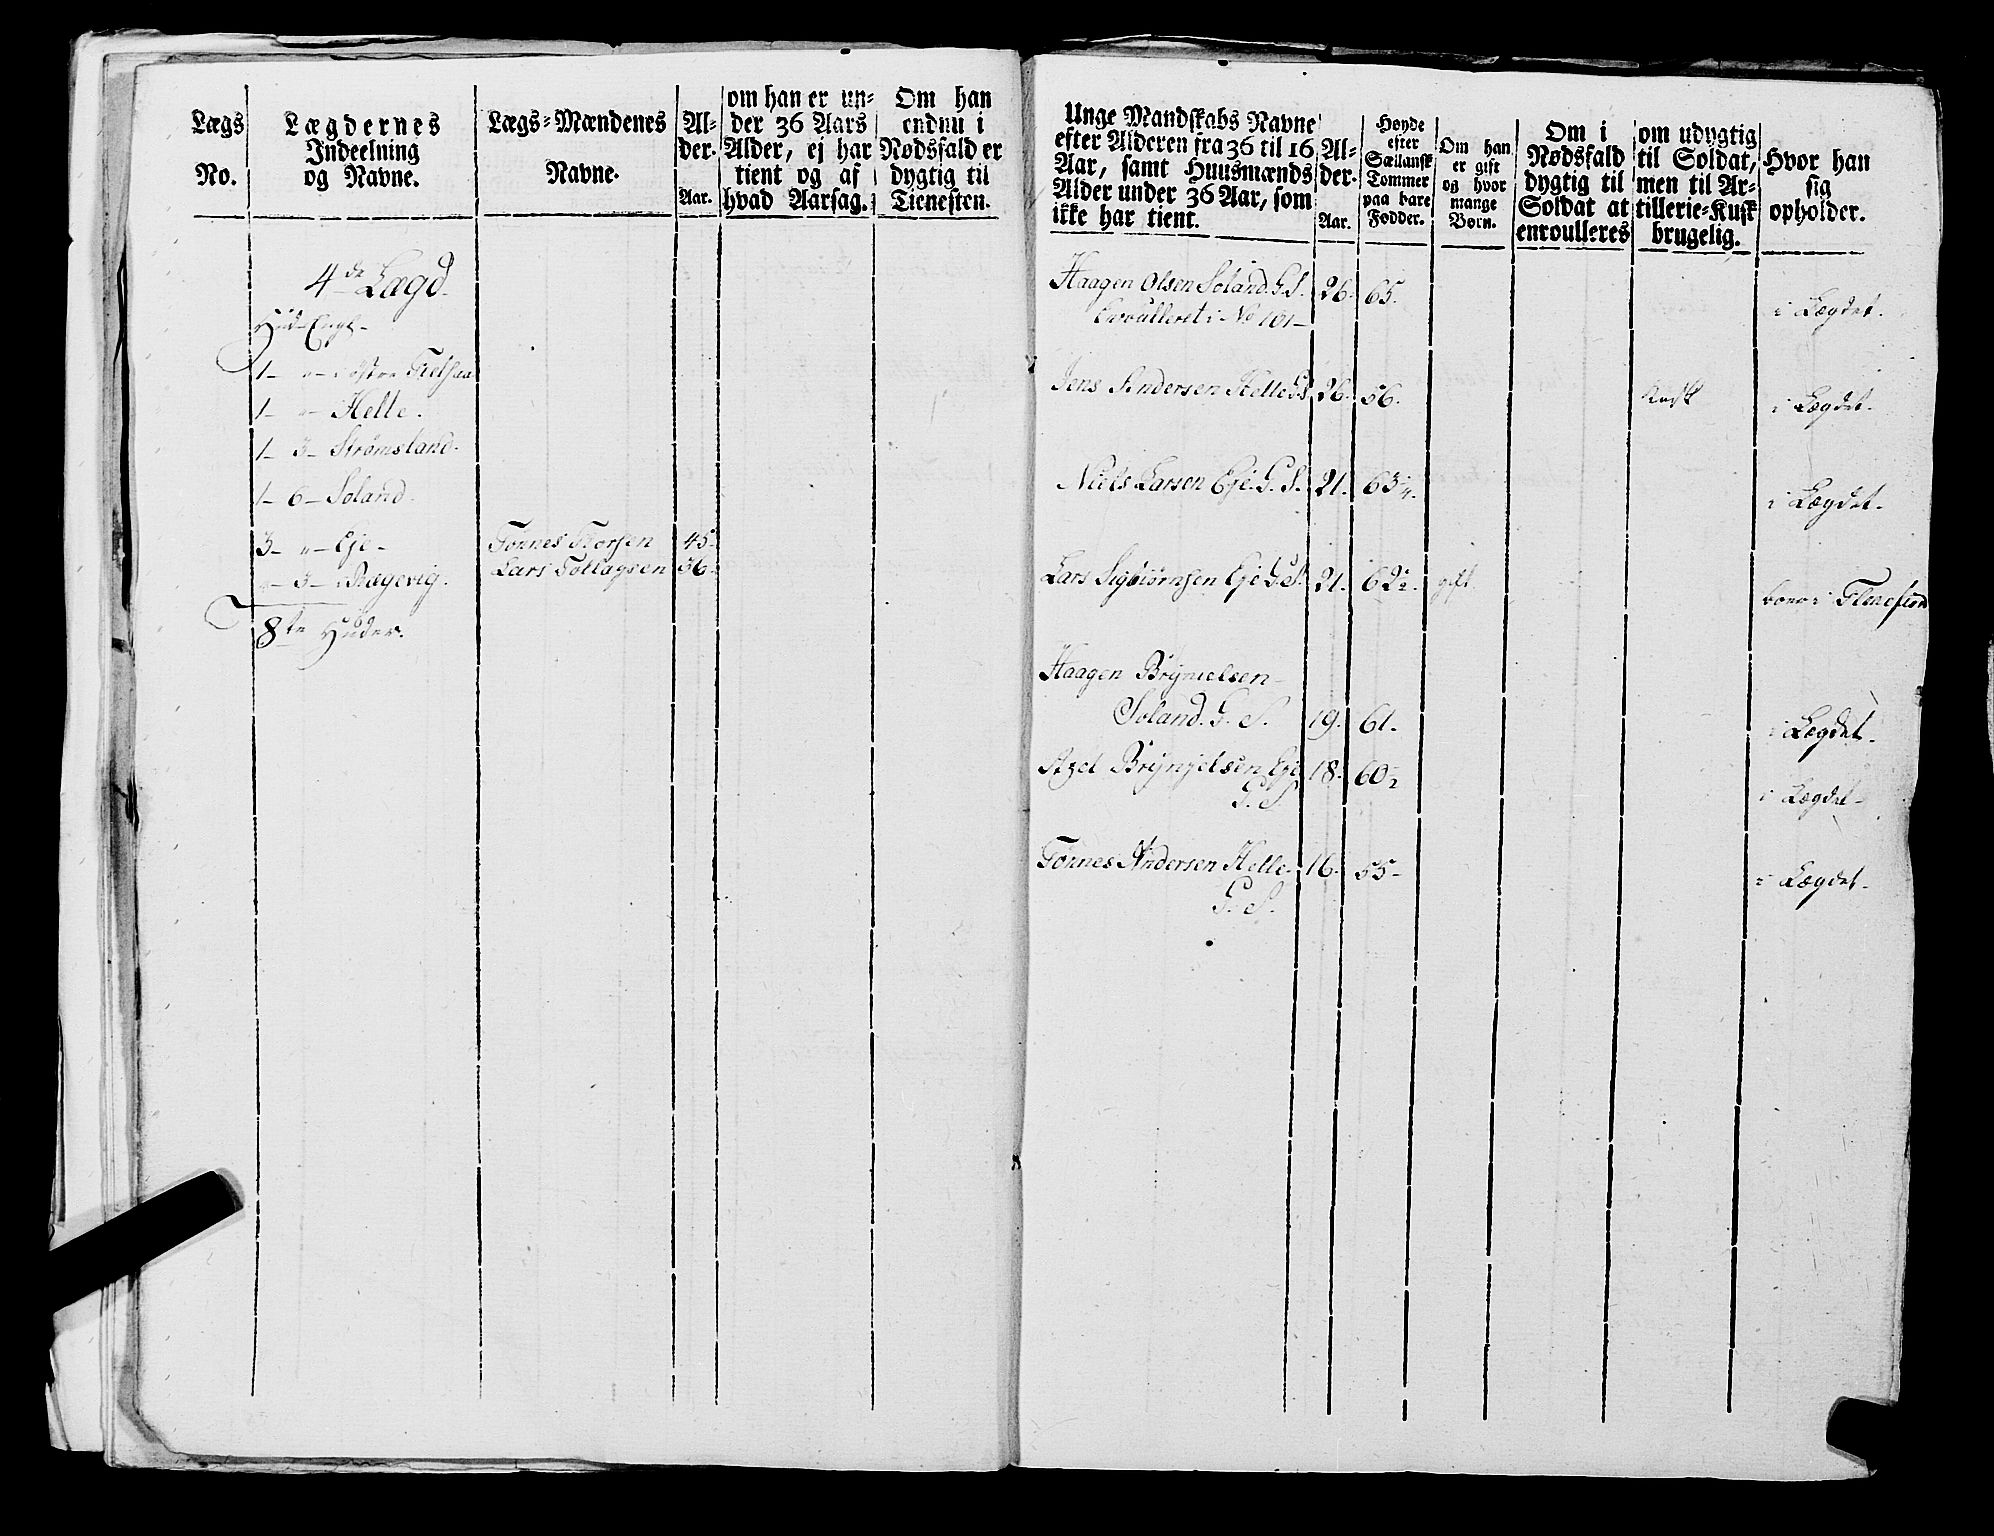 Lægs
No.
Lægdernes
Indeelning
og Navne.
Lægs-Mændenes
Navne.
Al-
der.
Aar.
om han er un-
der 36 Aars
Alder, ej har
tient og af
hvad Aarsag.
Om han
endnu i
Nødsfald er
dygtig til
Tienesten.
4de Lægd.
Hud- Engl-
1- "- Østre Fielsaa
1- "- Helle.
1- 3- Strømsland.
1- 6- Soland.
3- "- Eje- Tønnes Torsen 45.
"- 3- Rægevig. Lars Tollagsen 36.
8te Huder.
Unge Mandskabs Navne
efter Alderen fra 36 til 16
Aar, samt Huusmænds
Alder under 36 Aar, som
ikke har tient.
Al-
der.
Aar.
Høyde
efter
Sællansk
Tommer
paa bare
Fødder.
Om han
er gift
og hvor
mange
Børn.
Om i
Nødsfald
dygtig til
Soldat at
enroulleres
om udygtig
til Soldat,
men til Ar-
tillerie-Kusk
brugelig.
Hvor han
sig
opholder.
Haagen Olsen Soland. G. S. 26. 65. i Lægdet.
Enroulleret i No 101-
Jens Andersen Helle G S 26. 56. Kusk i Lægdet.
Niels Larsen Eje. G. S. 21. 63 1/4. i Lægdet.
Lars Sigbiørnsen Eje G. S. 21. 62 1/2. gift boer i
Haagen Brÿnielsen
Soland. G. S. 19. 61. i Lægdet.
Axel Brÿnjelsen Eje 18. 60 1/2 i Lægdet.
G. S.
Tønnes Andersen Helle. 16. 55- i Lægdet.
G. S.